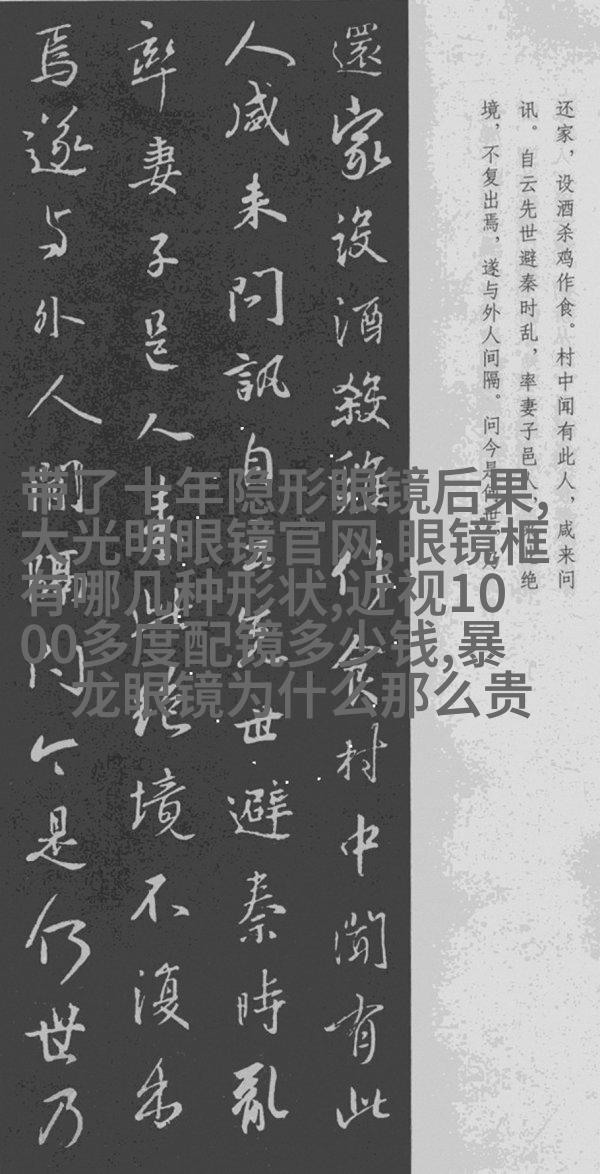 还家，设酒杀鸡作食。村中闻有此人，咸来问
讯。自云先世避秦时乱，率妻子邑人，来此绝
境，不复出焉，遂与外人间隔。问今是何世，乃
還家設酒殺雞作食村中聞有此
人咸来問訊自云先世避秦時亂
率妻子邑人来此絶境不復出
焉遂与外人間隔問今是何世乃
带了十年隐形眼镜后果,
大光明眼镜官网,眼镜框
有哪几种形状,近视10
00多度配镜多少钱,暴
龙眼镜为什么那么贵